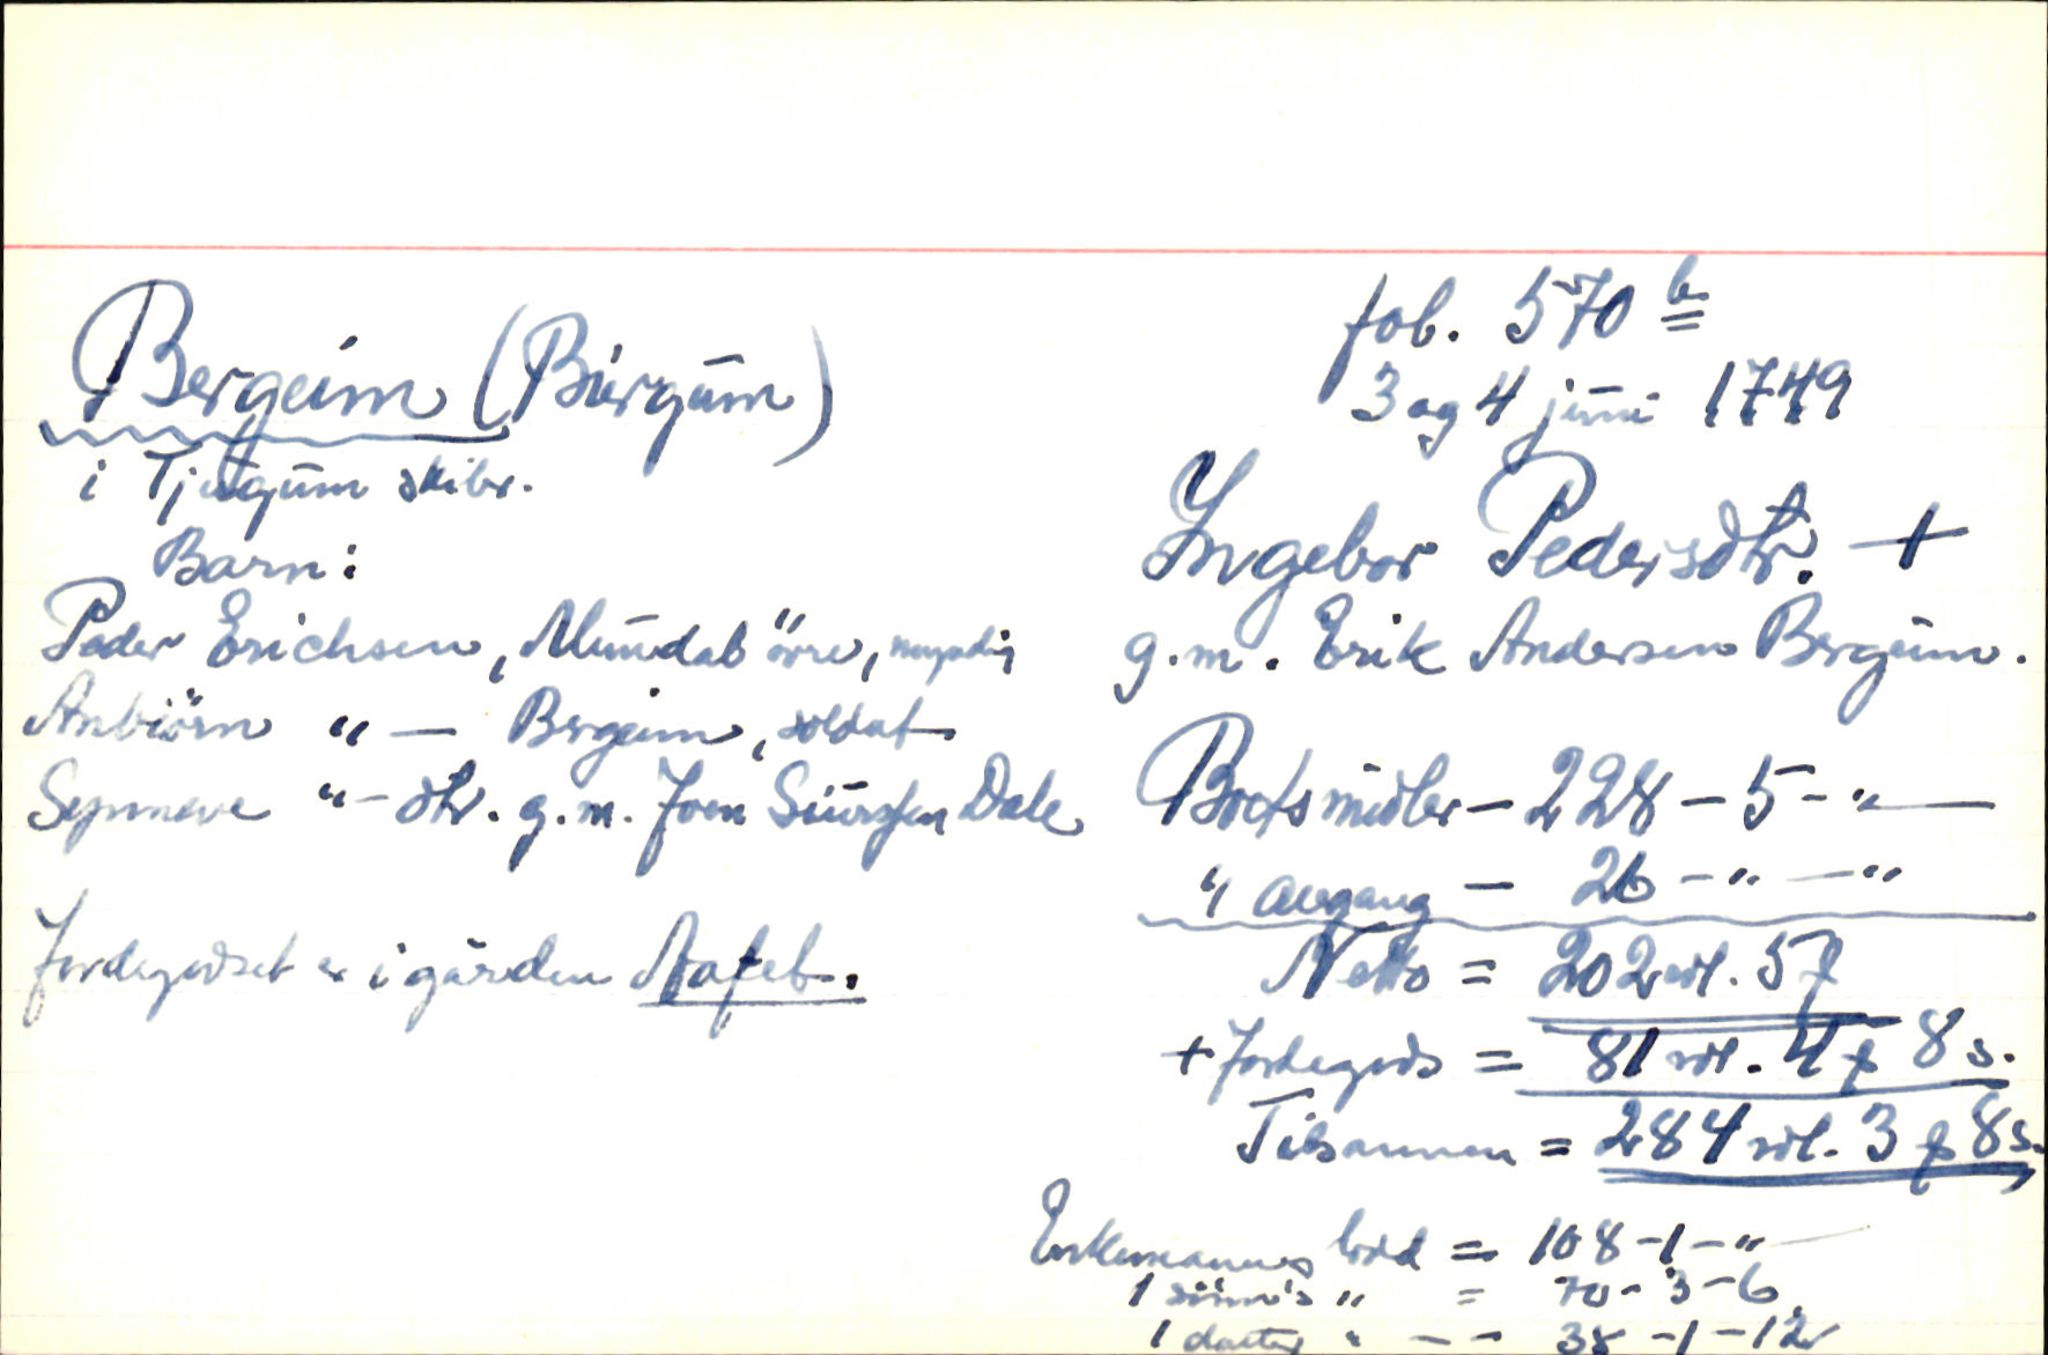 Bergeim (Biergum)
i Tjugum skibr.
Barn:
Peder Erichsen, Mundal örre, myndig
Anbiörn "— Bergeim, soldat
Synneve "— dtr. g.m. Joen Siursen Dale
Jordegodset er i gården Aafet.
fol. 570 b
3 og 4 juni 1749
Ingebor Pedersdtr. +
g.m. Erik Andersen Bergum.
Boets midler — 228 — 5 - "—
" avgang — 26 — " — "
Netto = 202 rdl. 5
+ Jordegods = 81 rdl. 4 8 s.
Tilsammen = 284 rdl. 3 8 s.
Enkemannens lodd = 108 - 1 - "
1 sönn's " = 70 - 3 - 6
1 datter " — — 38 - 1 - 12